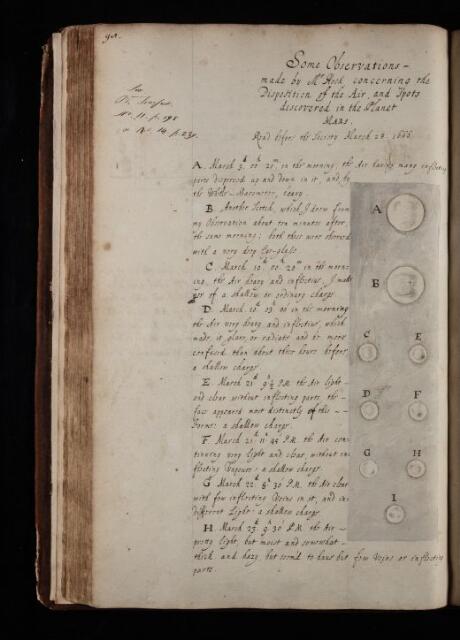 Some Observations –
made by Mr Hook, concerning the
Disposition of the Air, and Spots
discovered in the Planet
MARS.
Read before the Society March 28. 1666.
A. March 3d. 00h 20m in the morning, the Air having many inflecting
parts dispersed up and down in it, and by
the Wheel-Barometer, heavy.
B. Another Scetch, which I drew from
my Observation about ten minutes after,
the same morning; both these were observed
with a very deep Eye-glass
C. March. 10d. 00h. 20m in the morn-
ing, the Air heavy and inflective, I made
use of a shallow or ordinary charge
D. March. 10d. 03h. 00 in the morning
the Air very heavy and inflective, which
made it glare, or radiate and be more
confused than about three hours before
a shallow charge.
E. March 21d 9h½ P.M. the Air light –
and clear without inflecting parts, the
face appeared most distinctly of this –
Forme: a shallow charge.
F. March 21 11h 45 P.M. the Air con-
tinuing very light and clear, without in-
flecting Vapours: a shallow charge
G March 22d 8h 30' P.M. the Air clear
with few inflecting Veins in it, and in-
different Light: a shallow charge
H. March 23d 9h 30' P.M. the Air –
pretty light, but moist and somewhat –
thick and hazy, but seem'd to have but few Veins or inflecting
parts.
A
B
C E
D F
G H
I